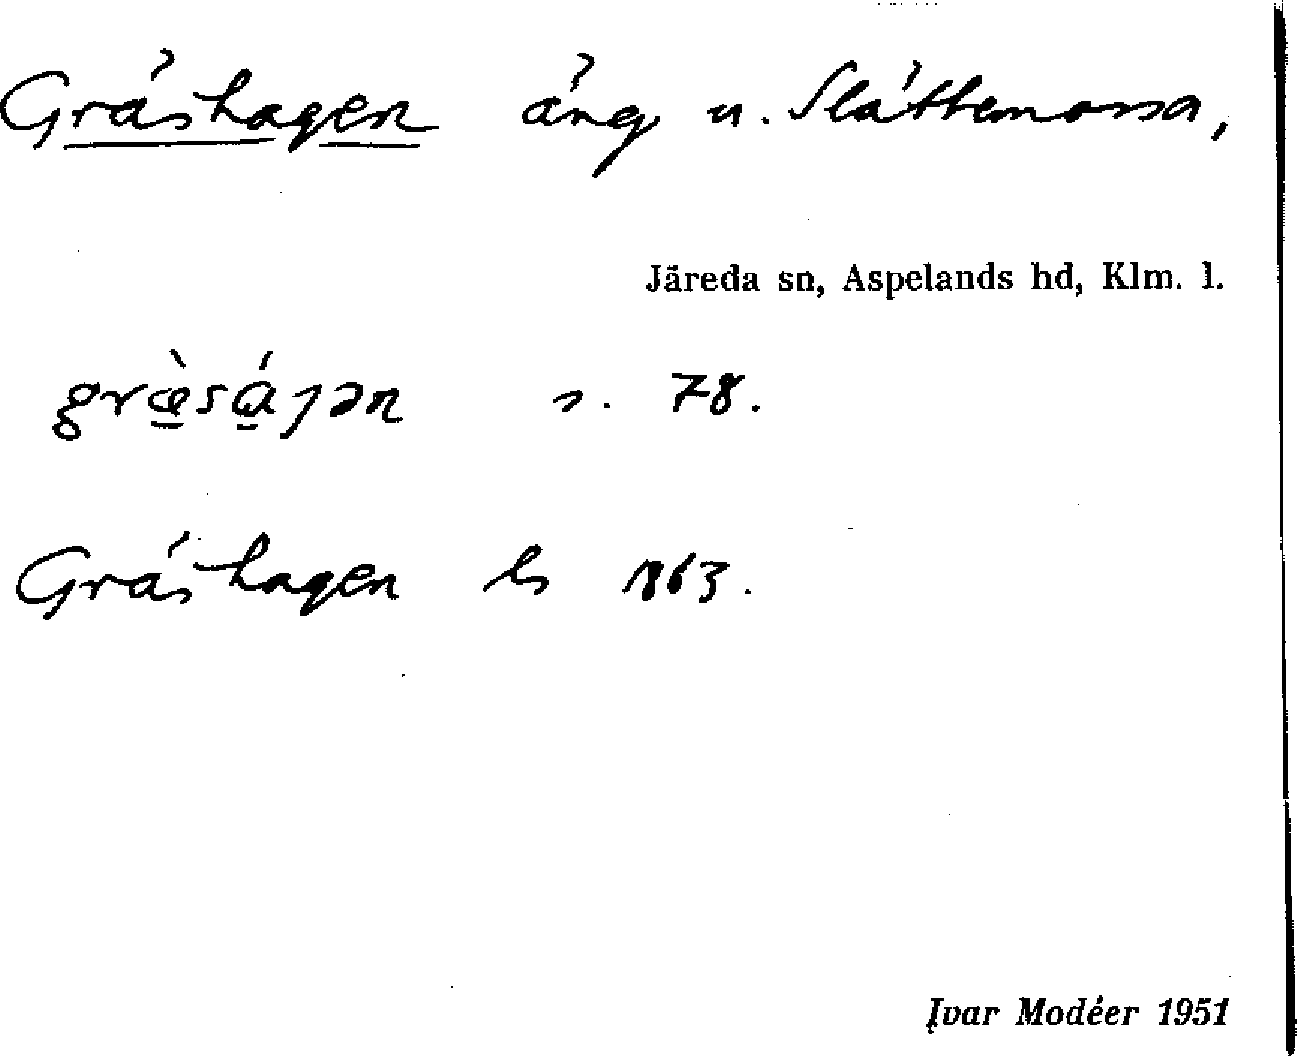 Gräshagen äng u. Slättemossa,
Järeda sn, Aspelands hd, Klm. l.
græ̀sá̱ɡən s. 78.
Gräshagen ls 1863.
Ivar Modéer 1951